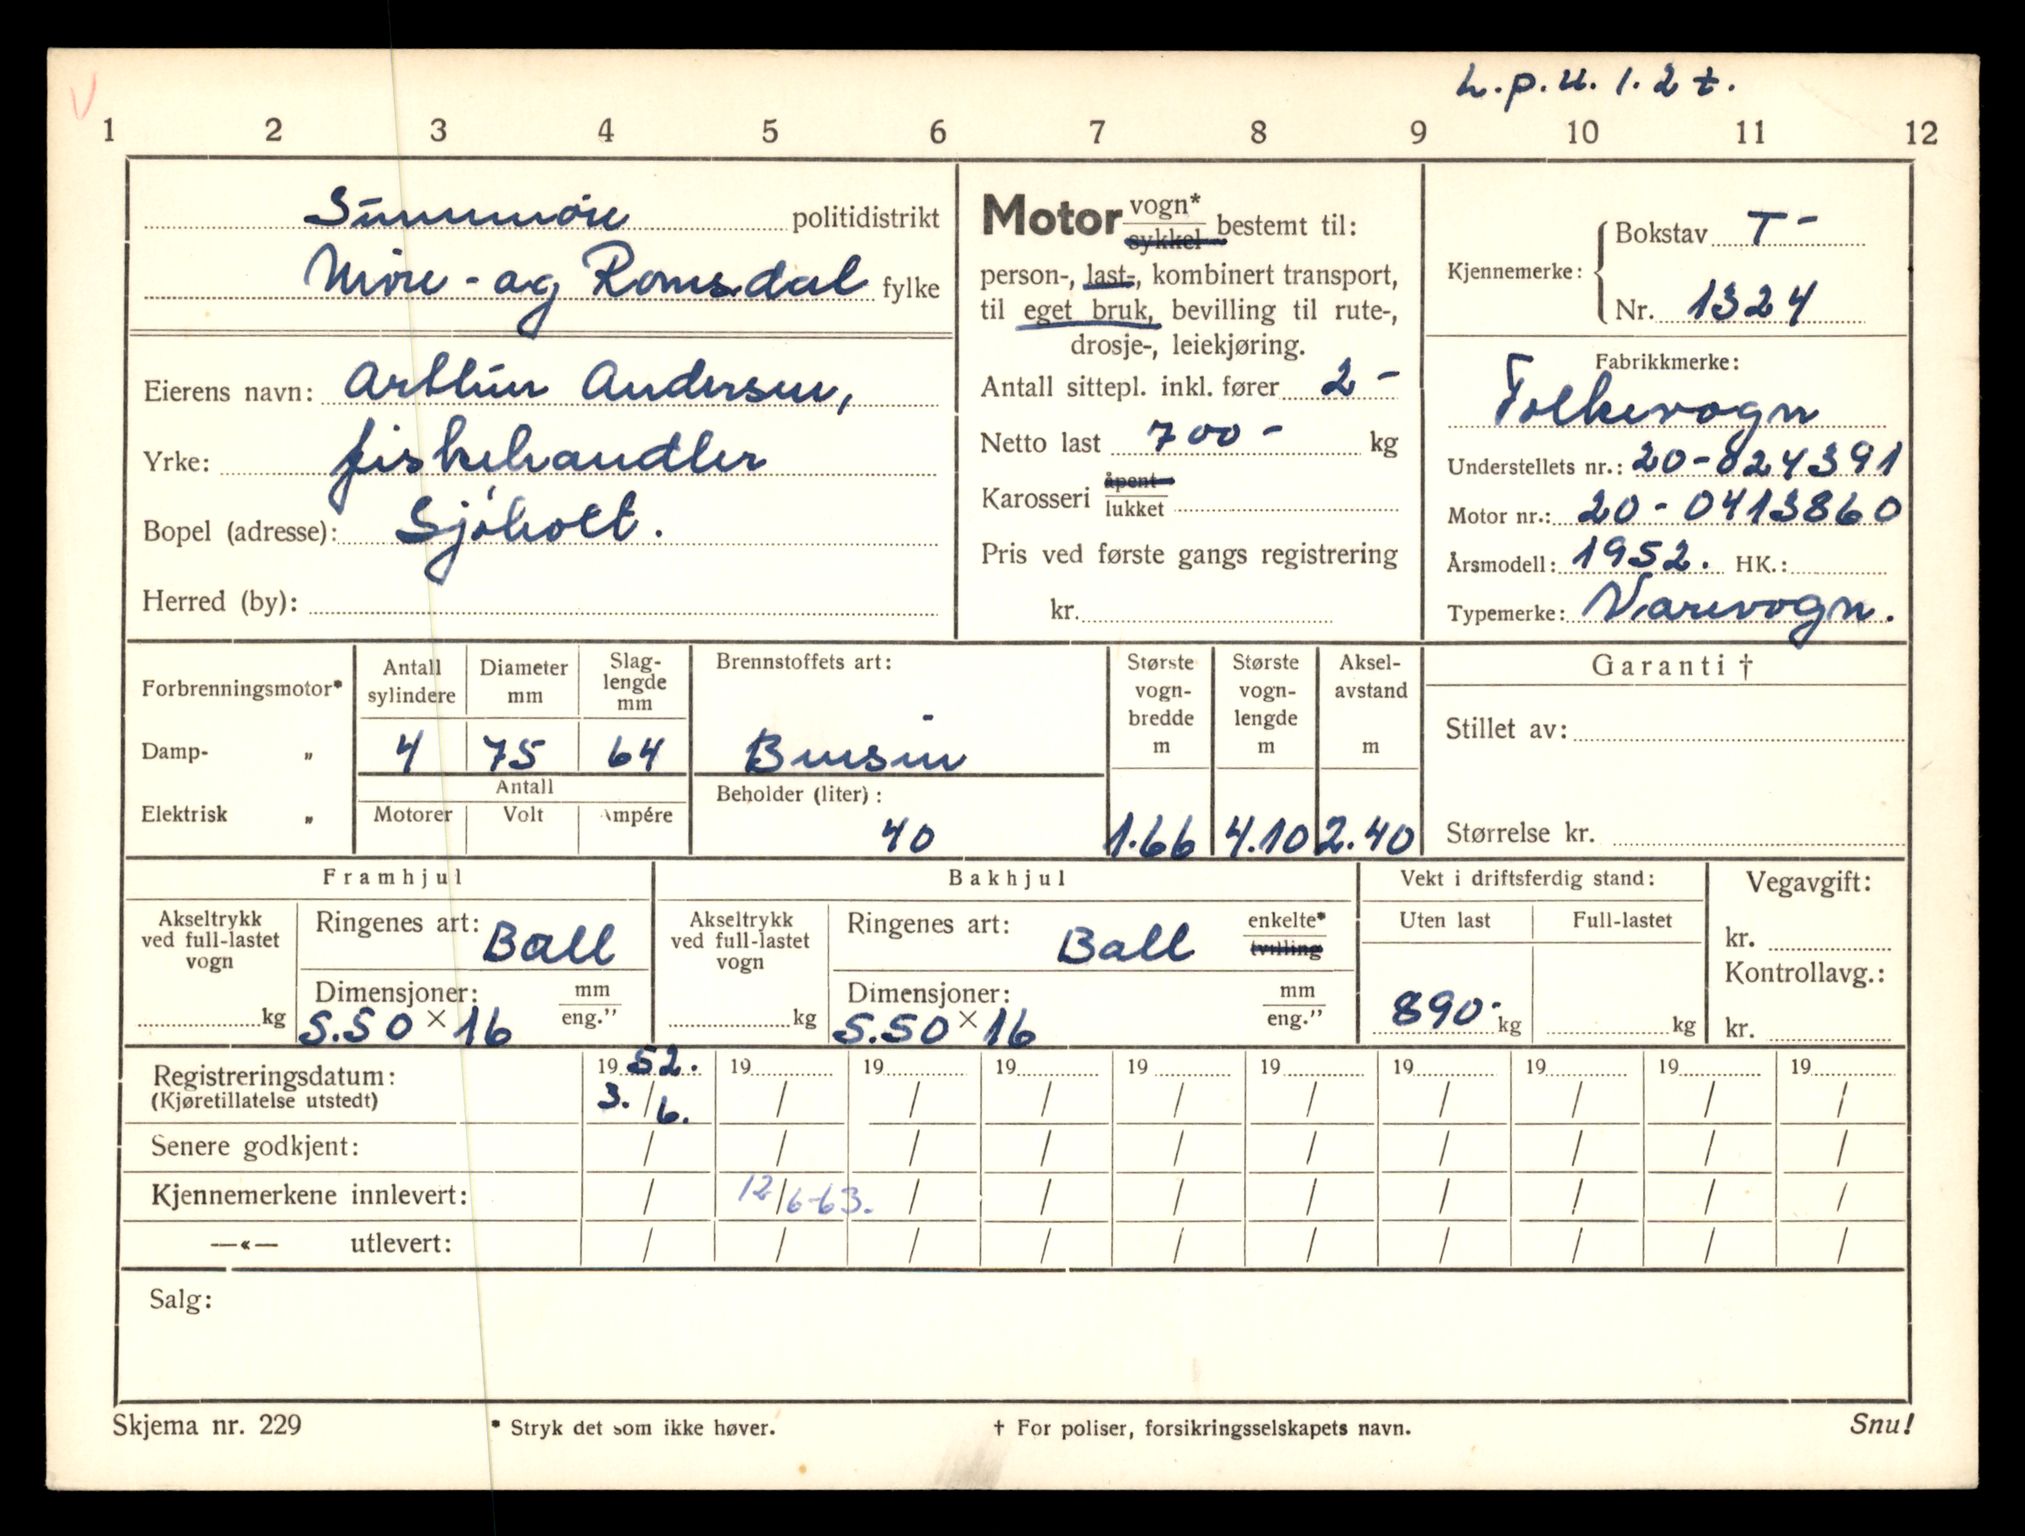 L.p.u. 1.2 t.
1 2 3 4 5 6 7 8 9 10 11 12
Sunnmøre politidistrikt
Møre- og Romsdal fylke
Eierens navn: Arthur Andersen,
Yrke: fiskehandler
Bopel (adresse): Sjøholt.
Herred (by):
Motor vogn* sykkel bestemt til:
person-, last-, kombinert transport,
til eget bruk, bevilling til rute-,
drosje-, leiekjøring.
Antall sittepl. inkl. fører 2-
Netto last 700- kg
Karosseri åpent lukket
Pris ved første gangs registrering
kr.
Kjennemerke: Bokstav T-
Nr. 1324
Fabrikkmerke:
Folkevogn
Understellets nr.: 20-024391
Motor nr.: 20-0413860
Årsmodell: 1952. HK.:
Typemerke: Varevogn.
Forbrenningsmotor*
Damp- „
Elektrisk „
Antall sylindere Diameter mm Slag-lengde mm
4 75 64
Antall
Motorer Volt Ampére
Brennstoffets art:
Bensin
Beholder (liter):
40
Største vogn-bredde m Største vogn-lengde m Aksel-avstand m
1.66 4.10 2.40
Garanti †
Stillet av:
Størrelse kr.
Framhjul
Akseltrykk ved full-lastet vogn
kg
Ringenes art: Ball
Dimensjoner: mm eng."
5.50 × 16
Bakhjul
Akseltrykk ved full-lastet vogn
kg
Ringenes art: Ball enkelte* tvilling
Dimensjoner: mm eng."
5.50 × 16
Vekt i driftsferdig stand:
Uten last Full-lastet
890.- kg kg
Vegavgift:
kr.
Kontrollavg.:
kr.
Registreringsdatum: 19 52. 19 19 19 19 19 19 19 19 19
(Kjøretillatelse utstedt) 3. / 6. / / / / / / / / /
Senere godkjent: / / / / / / / / / /
Kjennemerkene innlevert: / 12/6-63. / / / / / / / /
—«— utlevert: / / / / / / / / / /
Salg:
Skjema nr. 229 * Stryk det som ikke høver. † For poliser, forsikringsselskapets navn. Snu!